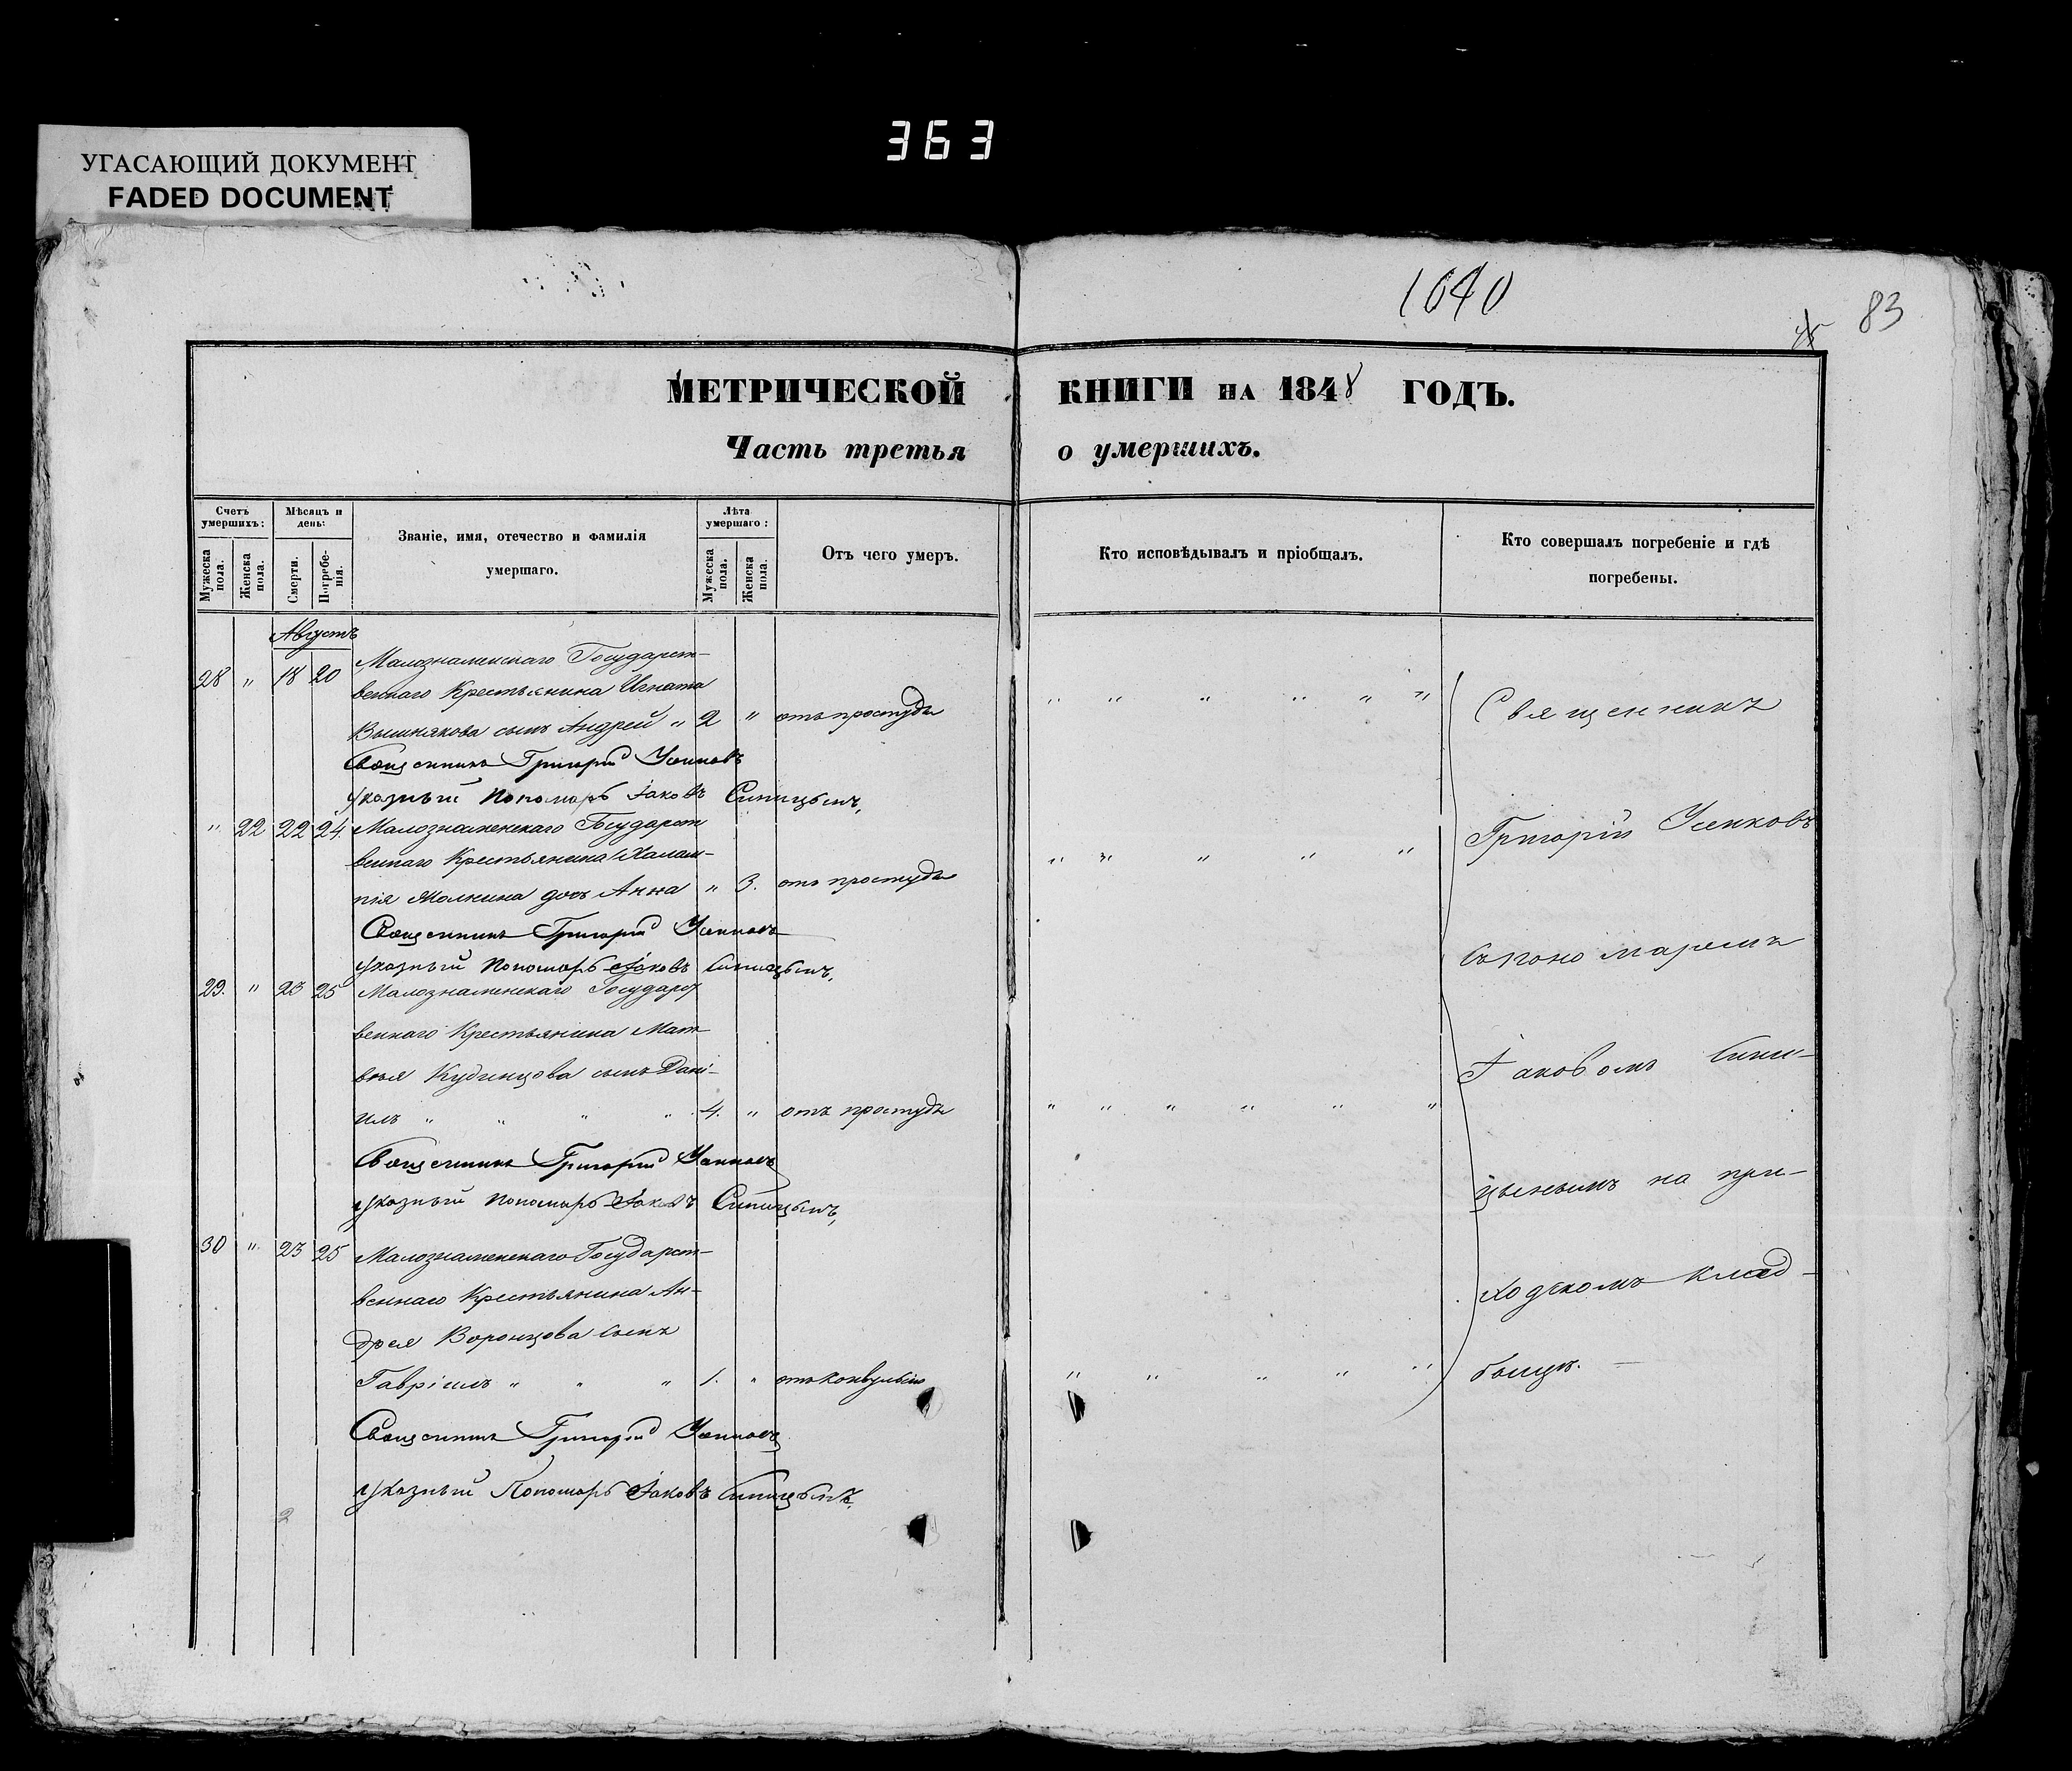 363
УГАСАЮЩИЙ ДОКУМЕНТ
FADED DOCUMENT
1640
83
МЕТРИЧЕСКОЙ КНИГИ НА 1848 ГОДЪ.
Часть третья о умершихъ.
Счетъ умершихъ:
Мужеска пола.
Женска пола.
Мѣсяцъ и день:
Смерти.
Погребе-нія.
Званіе, имя, отечество и фамилія
умершаго.
Лѣта умершаго:
Мужеска пола.
Женска пола.
Отъ чего умеръ.
Кто исповѣдывалъ и пріобщалъ.
Кто совершалъ погребеніе и гдѣ
погребены.
Августъ
28 " 18 20 Малознаменскаго Государст-
веннаго Крестьянина Игната
Вишнякова сынъ Андрей " 2 " отъ простуды
Священникъ Григорій Усенковъ
указный Пономарь Іаковъ Синицынъ,
" 22 22 24 Малознаменскаго Государст
веннаго Крестьянина Халам-
пія Молкина дочь Анна " 3. отъ простуды
Священникъ Григорій Усенковъ
указный Пономарь Іаковъ Синицынъ,
29. " 23 25 Малознаменскаго Государст
веннаго Крестьянина Мат
вѣя Кудинцова сынъ Дані-
илъ " " " " 4. " отъ простуды
Священникъ Григорій Усенковъ
указный Пономарь Іаковъ Синицынъ,
30 " 23 25 Малознаменскаго Государст-
веннаго Крестьянина Ан-
дрея Воронцова сынъ
Гавріилъ " " " 1. " отъ конвульсіи
Священникъ Григорій Усенковъ
указный Пономарь Іаковъ Синицынъ.
Священникъ
Григорій Усенковъ
съ пономаремъ
Іаковомъ Сини-
цынымъ на при-
ходскомъ клад-
бищѣ.